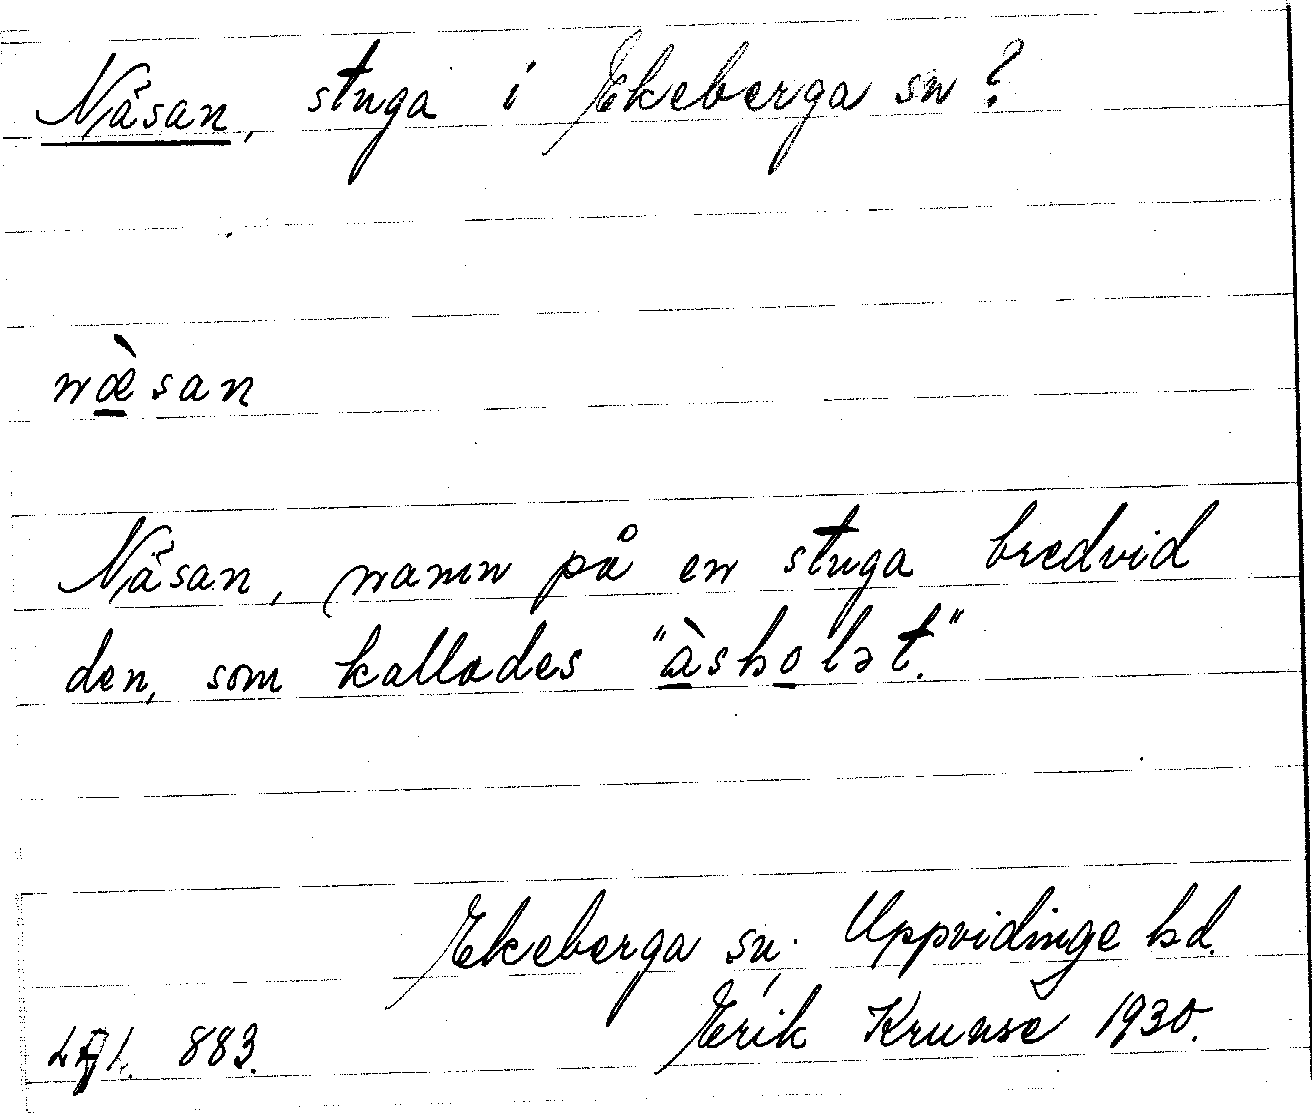 Näsan, stuga i Ekeberga sn?
næ̀san
Näsan, namn på en stuga bredvid
den, som kallades "àsholət."
Ekeberga sn, Uppvidinge hd.
883. Erik Krunse 1930.